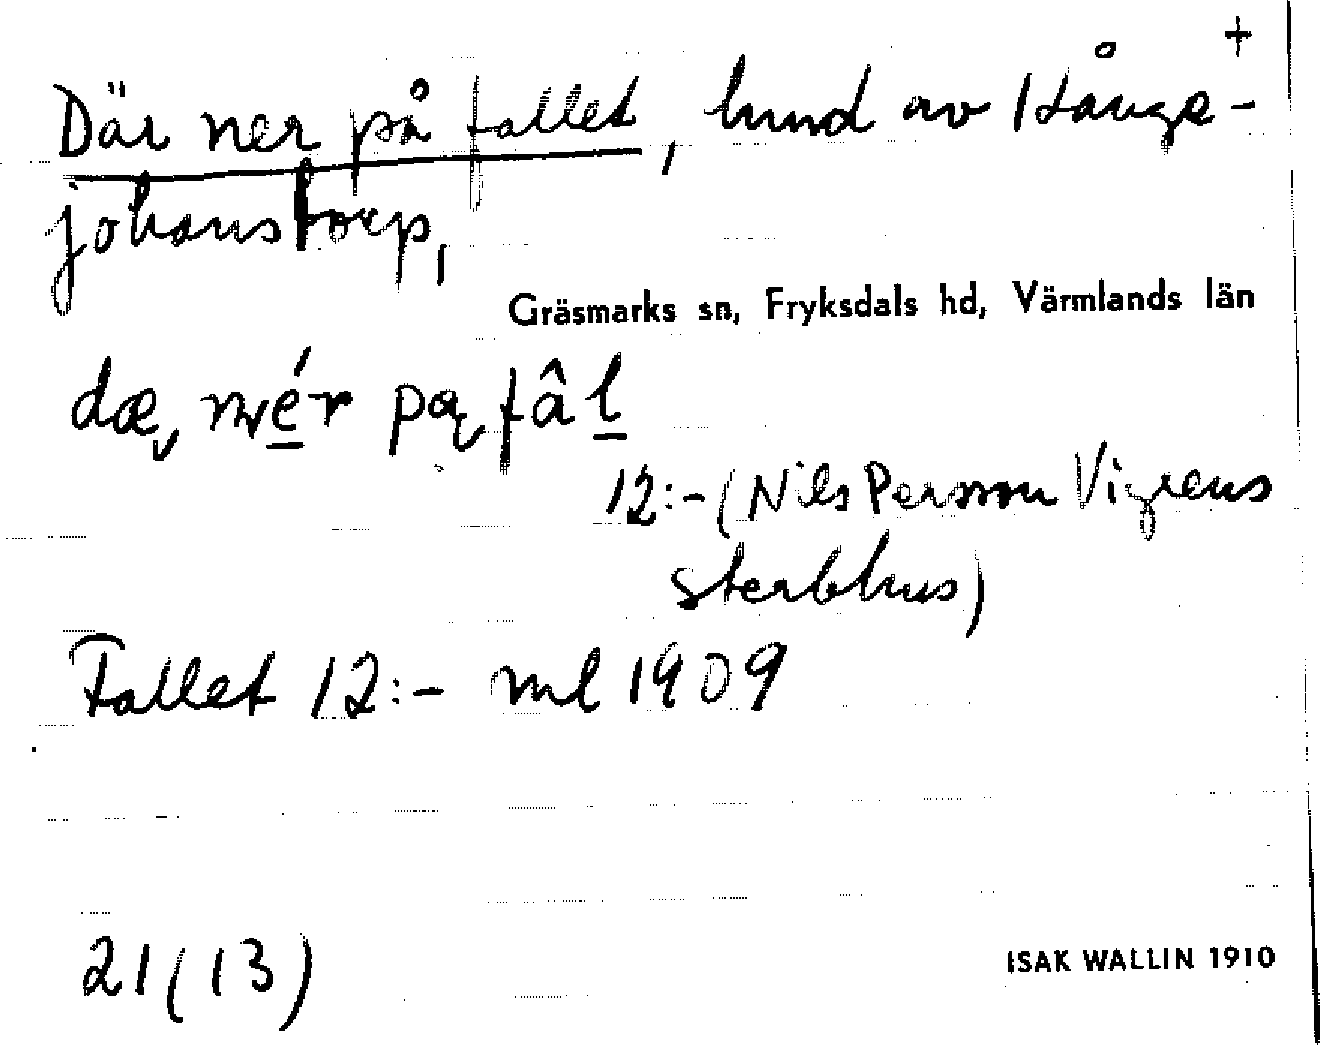 +
Där ner på fallet, hund av Hånge-
johanstorp,
Gräsmarks sn, Fryksdals hd, Värmlands län
pą fâl
12:- (Nils Persson Vigrens
sterbhus)
Fallet 12:- ml 1909
21(13)
ISAK WALLIN 1910